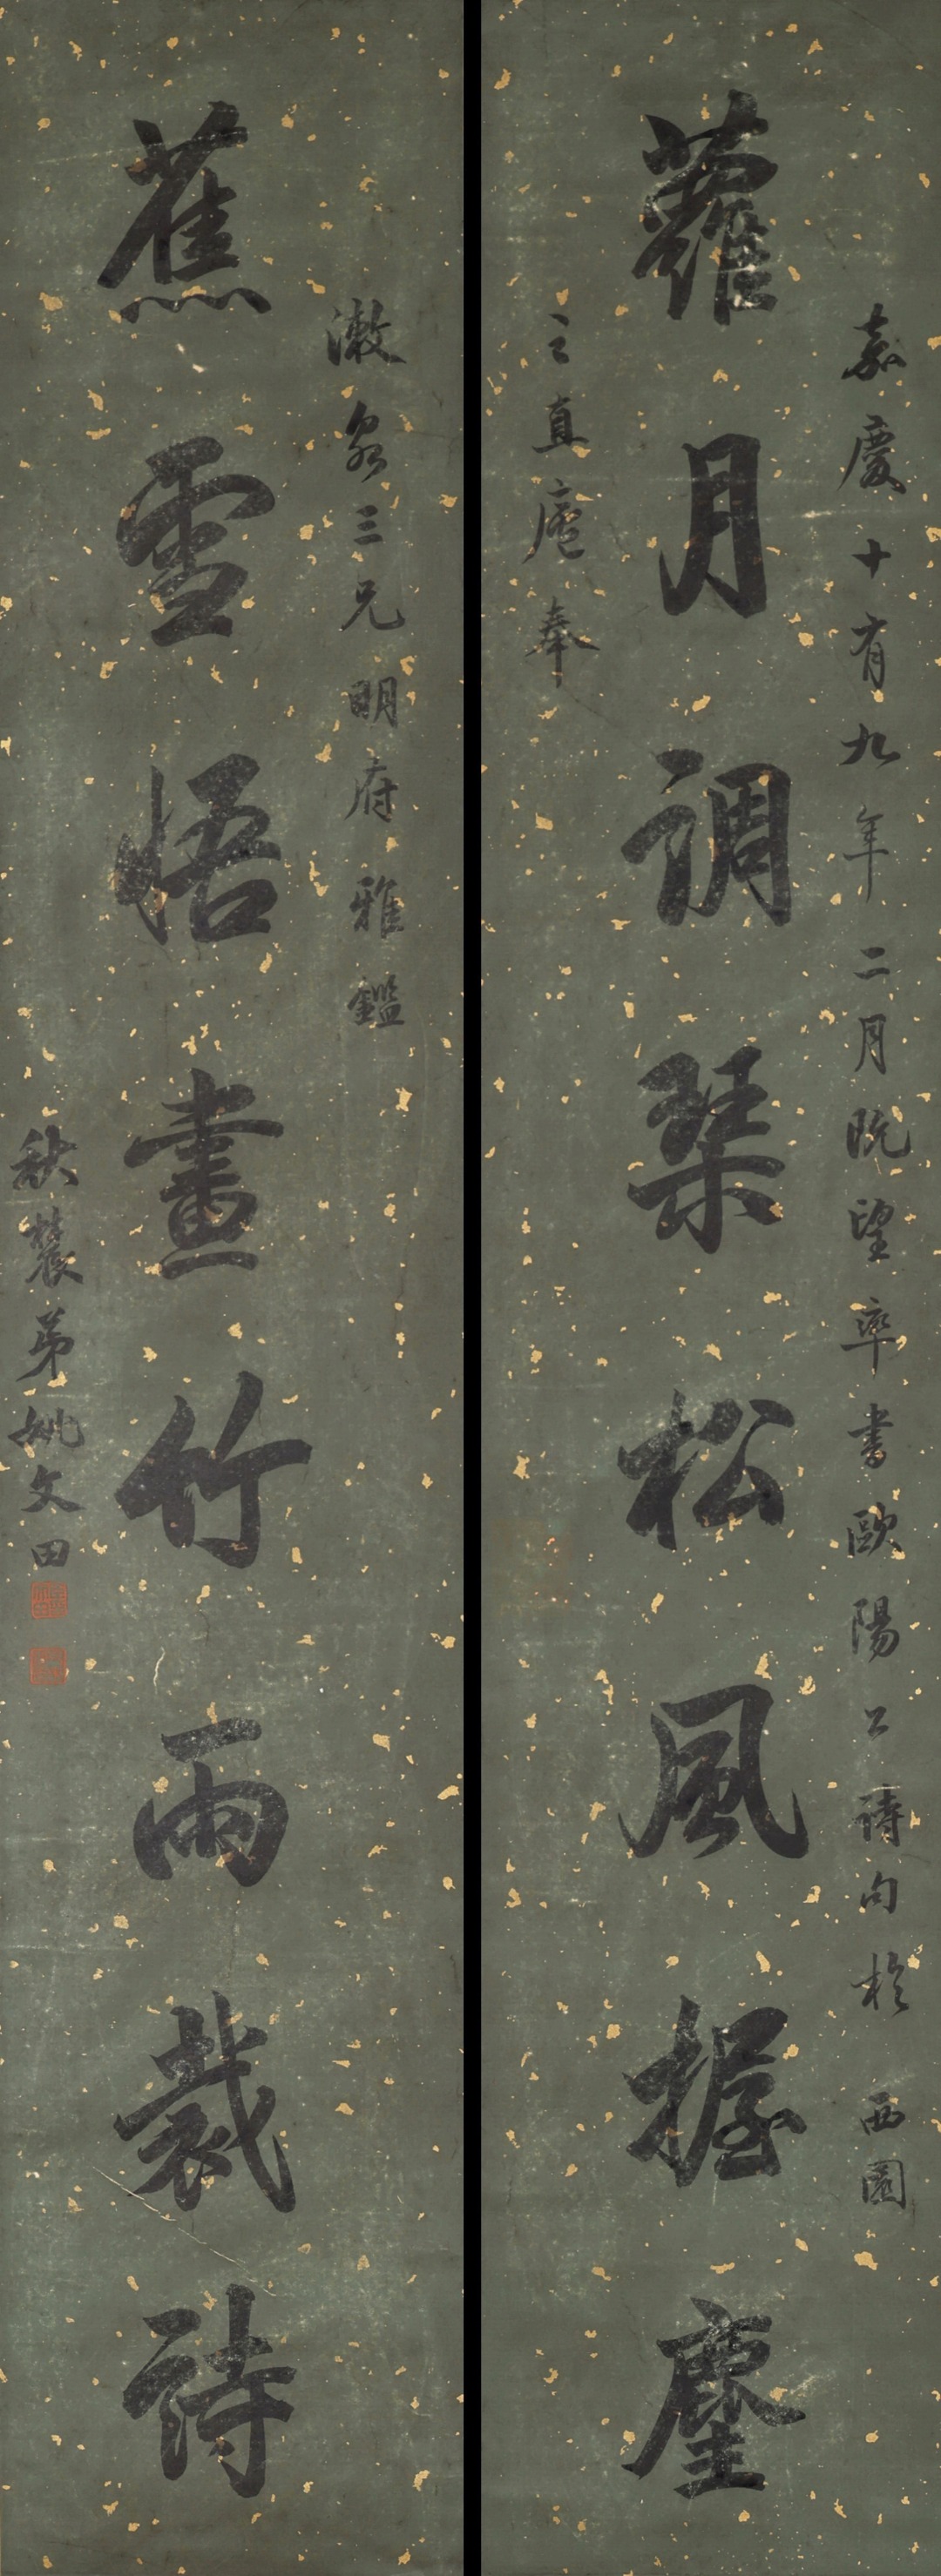 嘉慶十有九年二月既望率書歐陽公詩句於西園
蘿月調琹松風握麈
之直庵奉
漱泉三兄明府雅鑑
蕉雪悟畫竹雨裁詩
秋農弟姚文田